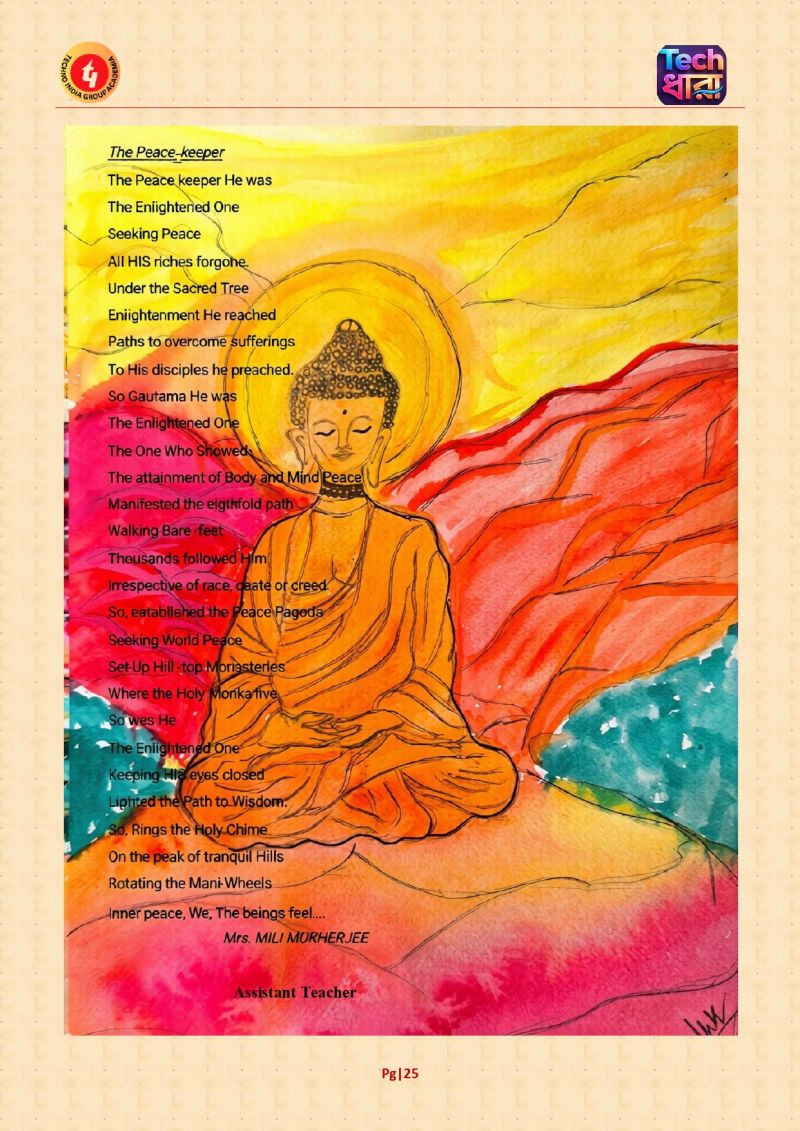 TECHNO INDIA GROUP ACADEMIA
Tech
ধারা
The Peace-keeper
The Peace keeper He was
The Eniightened One
Seeking Peace
All HIS riches forgone.
Under the Sacred Tree
Eniightanment He reached
Paths to overcome sufferings
To His disciples he preached.
So Gautama He was
The Enlightened One
The One Who Showed:
The attainment of Body and Mind Peace
Manifested the eigthfold path
Walking Bare -feet
Thousands followed Him
Irrespective of race, caate or creed.
So, eatabllehed the Peace Pagoda
Seeking World Peace
Set-Up Hill -top Monasterles
Where the Holy Monka five
So wes He
The Enlightened One
Keeping HIS eyes closed
Liphted the Path to Wisdom.
So, Rings the Holy Chime
On the peak of tranquil Hills
Rotating the Mani-Wheels
Inner peace, We, The beings feel....
Mrs. MILI MURHERJEE
Assistant Teacher
Pg|25